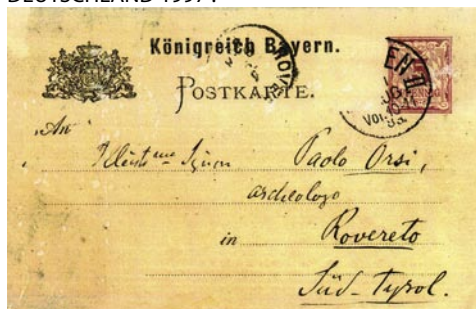 DEUTSCHLAND 1997 .
Königreich Bayern.
POSTKARTE.
An
Paolo Orsi,
archeologo
in Rovereto
Süd-Tyrol.